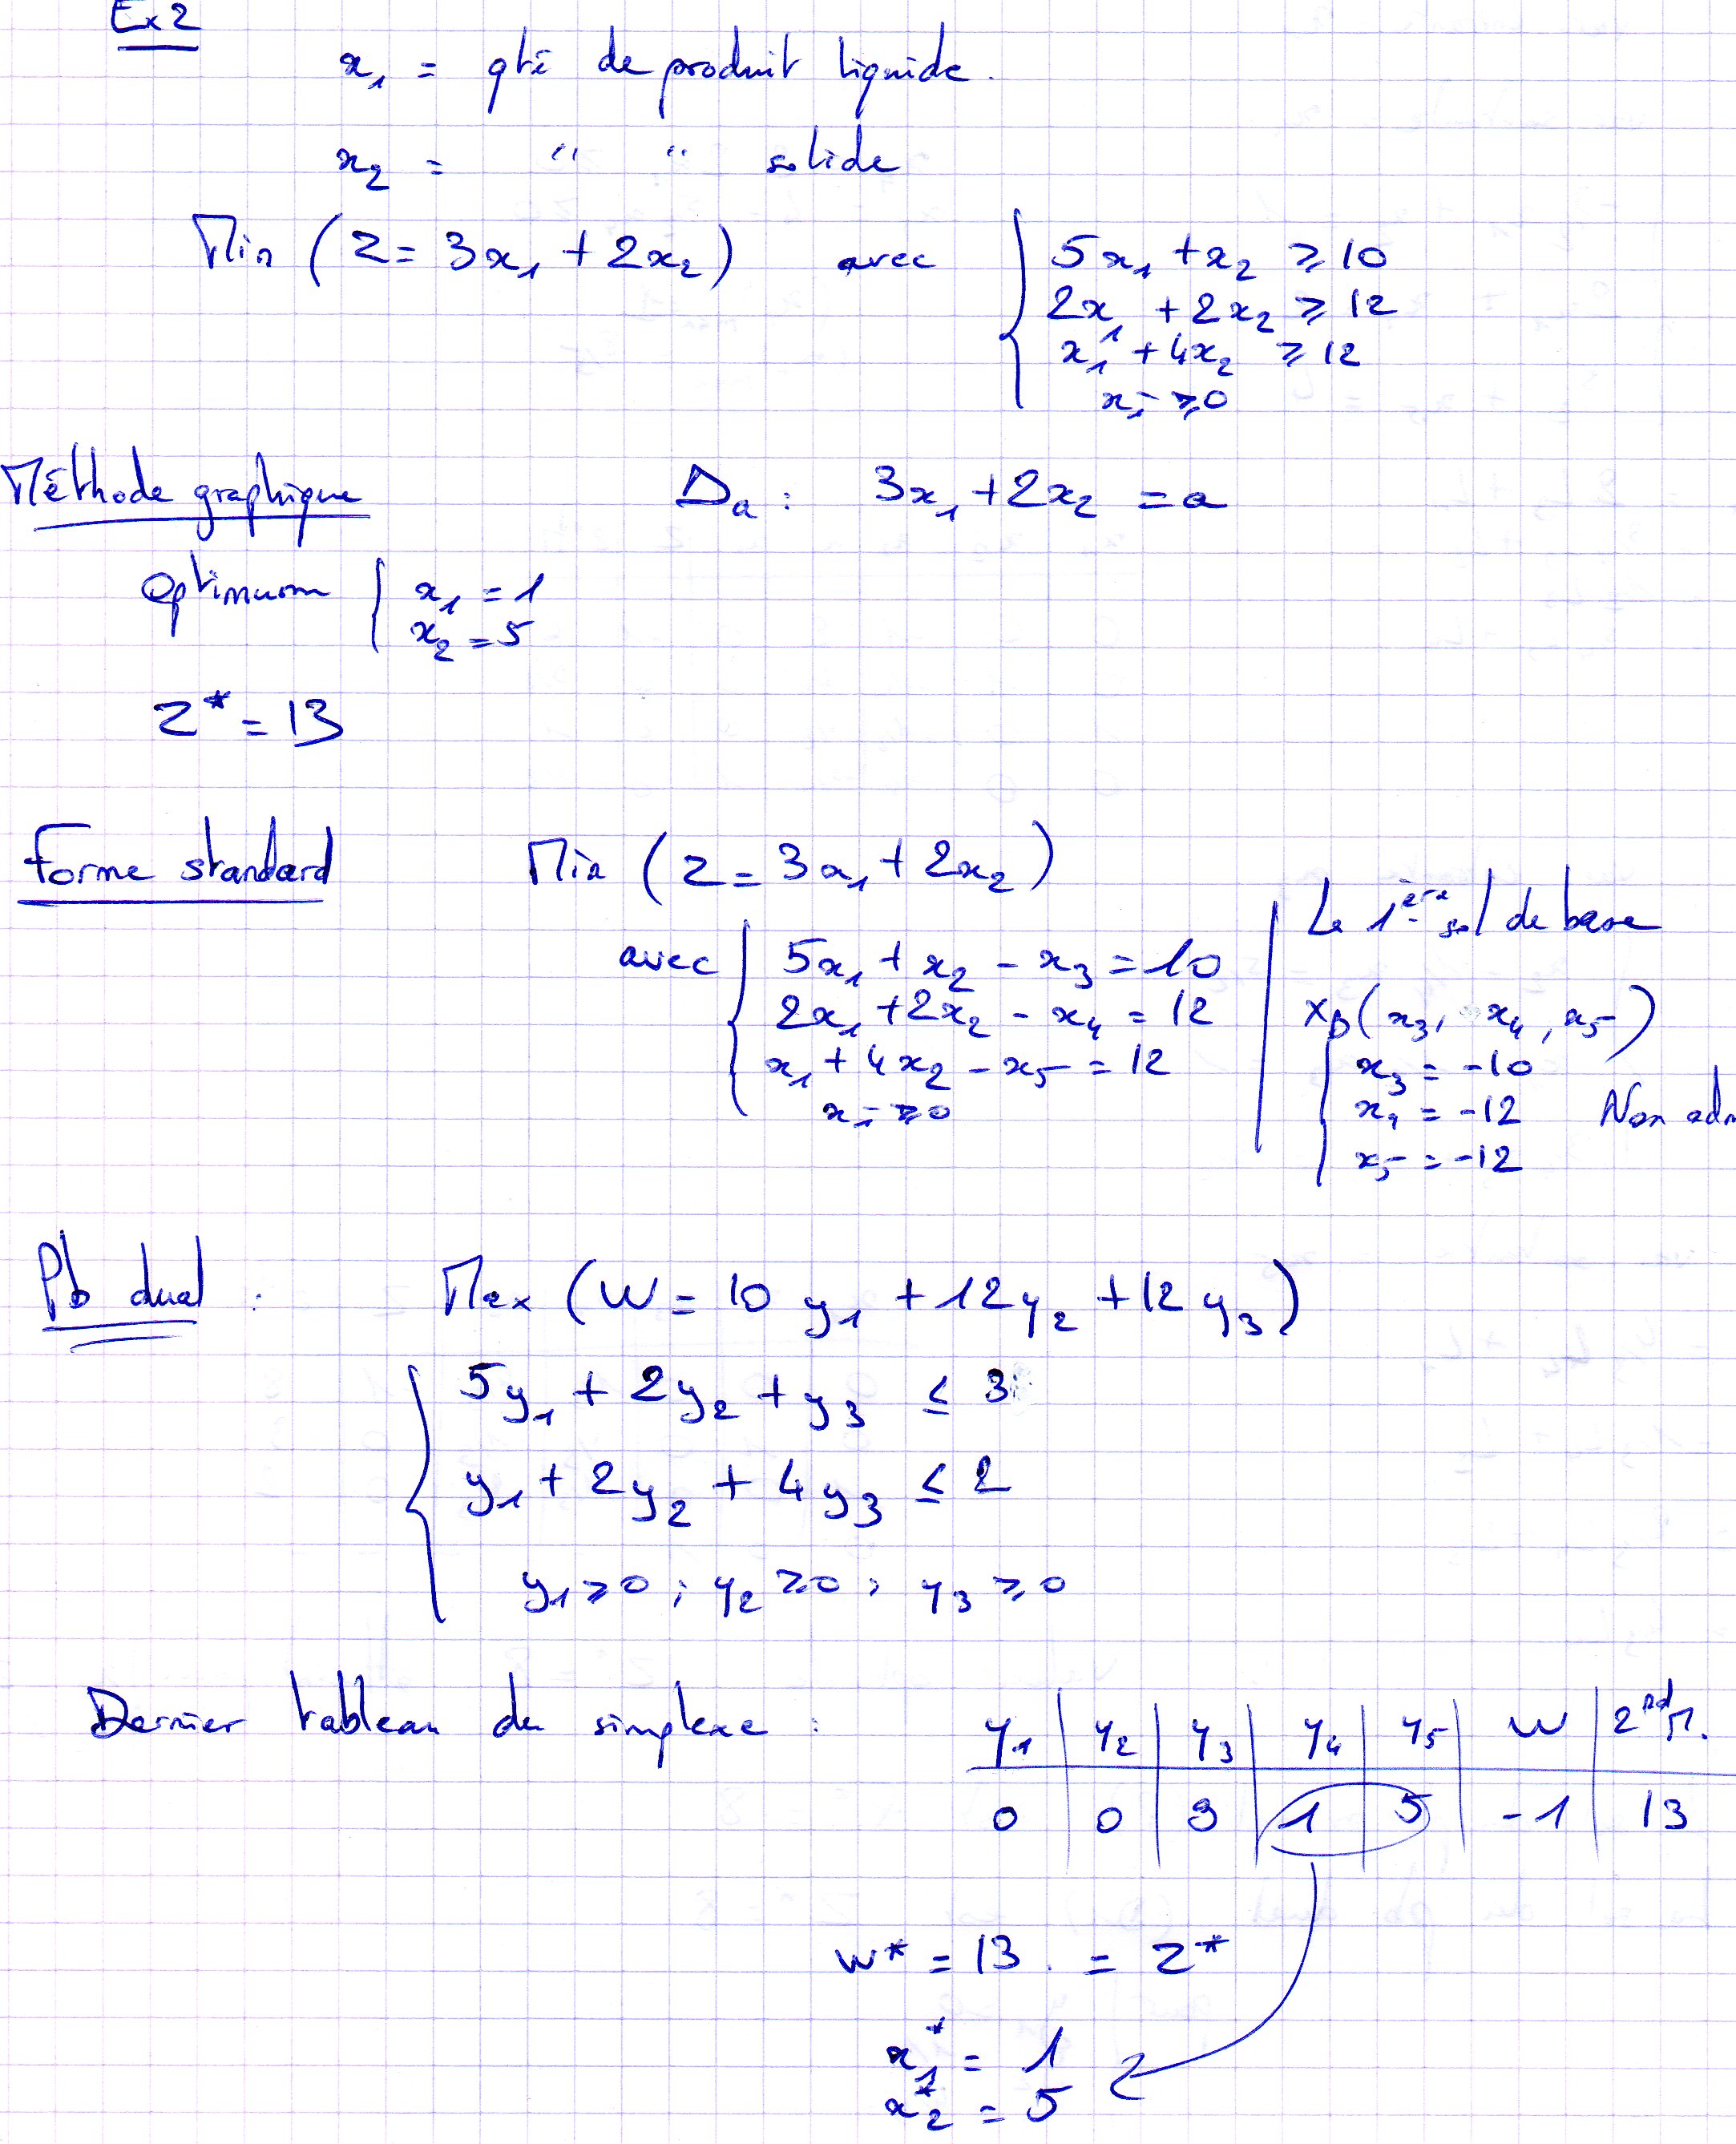 Ex 2
x₁ = qté de produit liquide.
x₂ = " " solide
Min (Z = 3x₁ + 2x₂) avec { 5x₁ + x₂ ≥ 10
2x₁ + 2x₂ ≥ 12
x₁ + 4x₂ ≥ 12
xᵢ ≥ 0
Méthode graphique Δₐ : 3x₁ + 2x₂ = a
Optimum { x₁ = 1
x₂ = 5
Z* = 13
Forme standard Min (Z = 3x₁ + 2x₂)
avec { 5x₁ + x₂ - x₃ = 10
2x₁ + 2x₂ - x₄ = 12
x₁ + 4x₂ - x₅ = 12
xᵢ ≥ 0
La 1ère sol de base
X_B (x₃, x₄, x₅)
{ x₃ = -10
x₄ = -12 Non adm
x₅ = -12
Pb dual : Max (W = 10 y₁ + 12 y₂ + 12 y₃)
{ 5y₁ + 2y₂ + y₃ ≤ 3
y₁ + 2y₂ + 4y₃ ≤ 2
y₁ ≥ 0 ; y₂ ≥ 0 ; y₃ ≥ 0
Dernier tableau du simplexe :
y₁ | y₂ | y₃ | y₄ | y₅ | W | 2nd M.
0 | 0 | 9 | 1 | 5 | -1 | 13
W* = 13 . = Z*
x₁* = 1
x₂* = 5